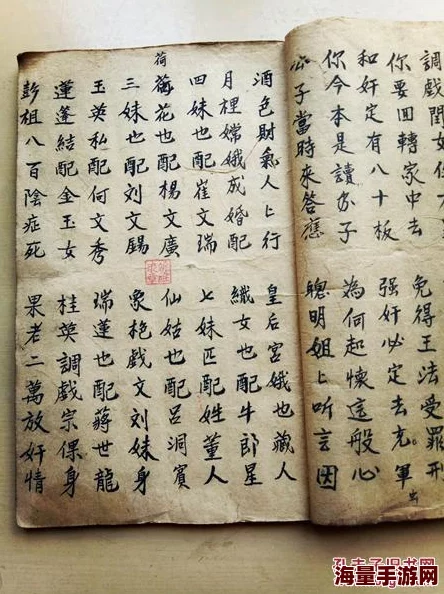 你要回轉家中去
免得王法受罪刑
和奸定有八十板
强奸必定去充軍
你今本是讀子
為何起懷這般心
公子當時來答應
聰明姐上听言因
酒色財氣人上行
皇后宮娥也藏人
月裡嫦娥成婚配
織女也配牛郎星
四妹也配崔文瑞
七妹匹配姓董人
荷
花也配楊文廣
仙姑也配呂洞賓
三妹也配刘文錫
象戲文刘妹身
玉英私配何文秀
瑞蓮也配蔣世龍
蓮蓬結配金玉女
桂英調戲宗保身
彭祖八百陰症死
果老二萬放奸情
孔夫子旧书网
海量手游网